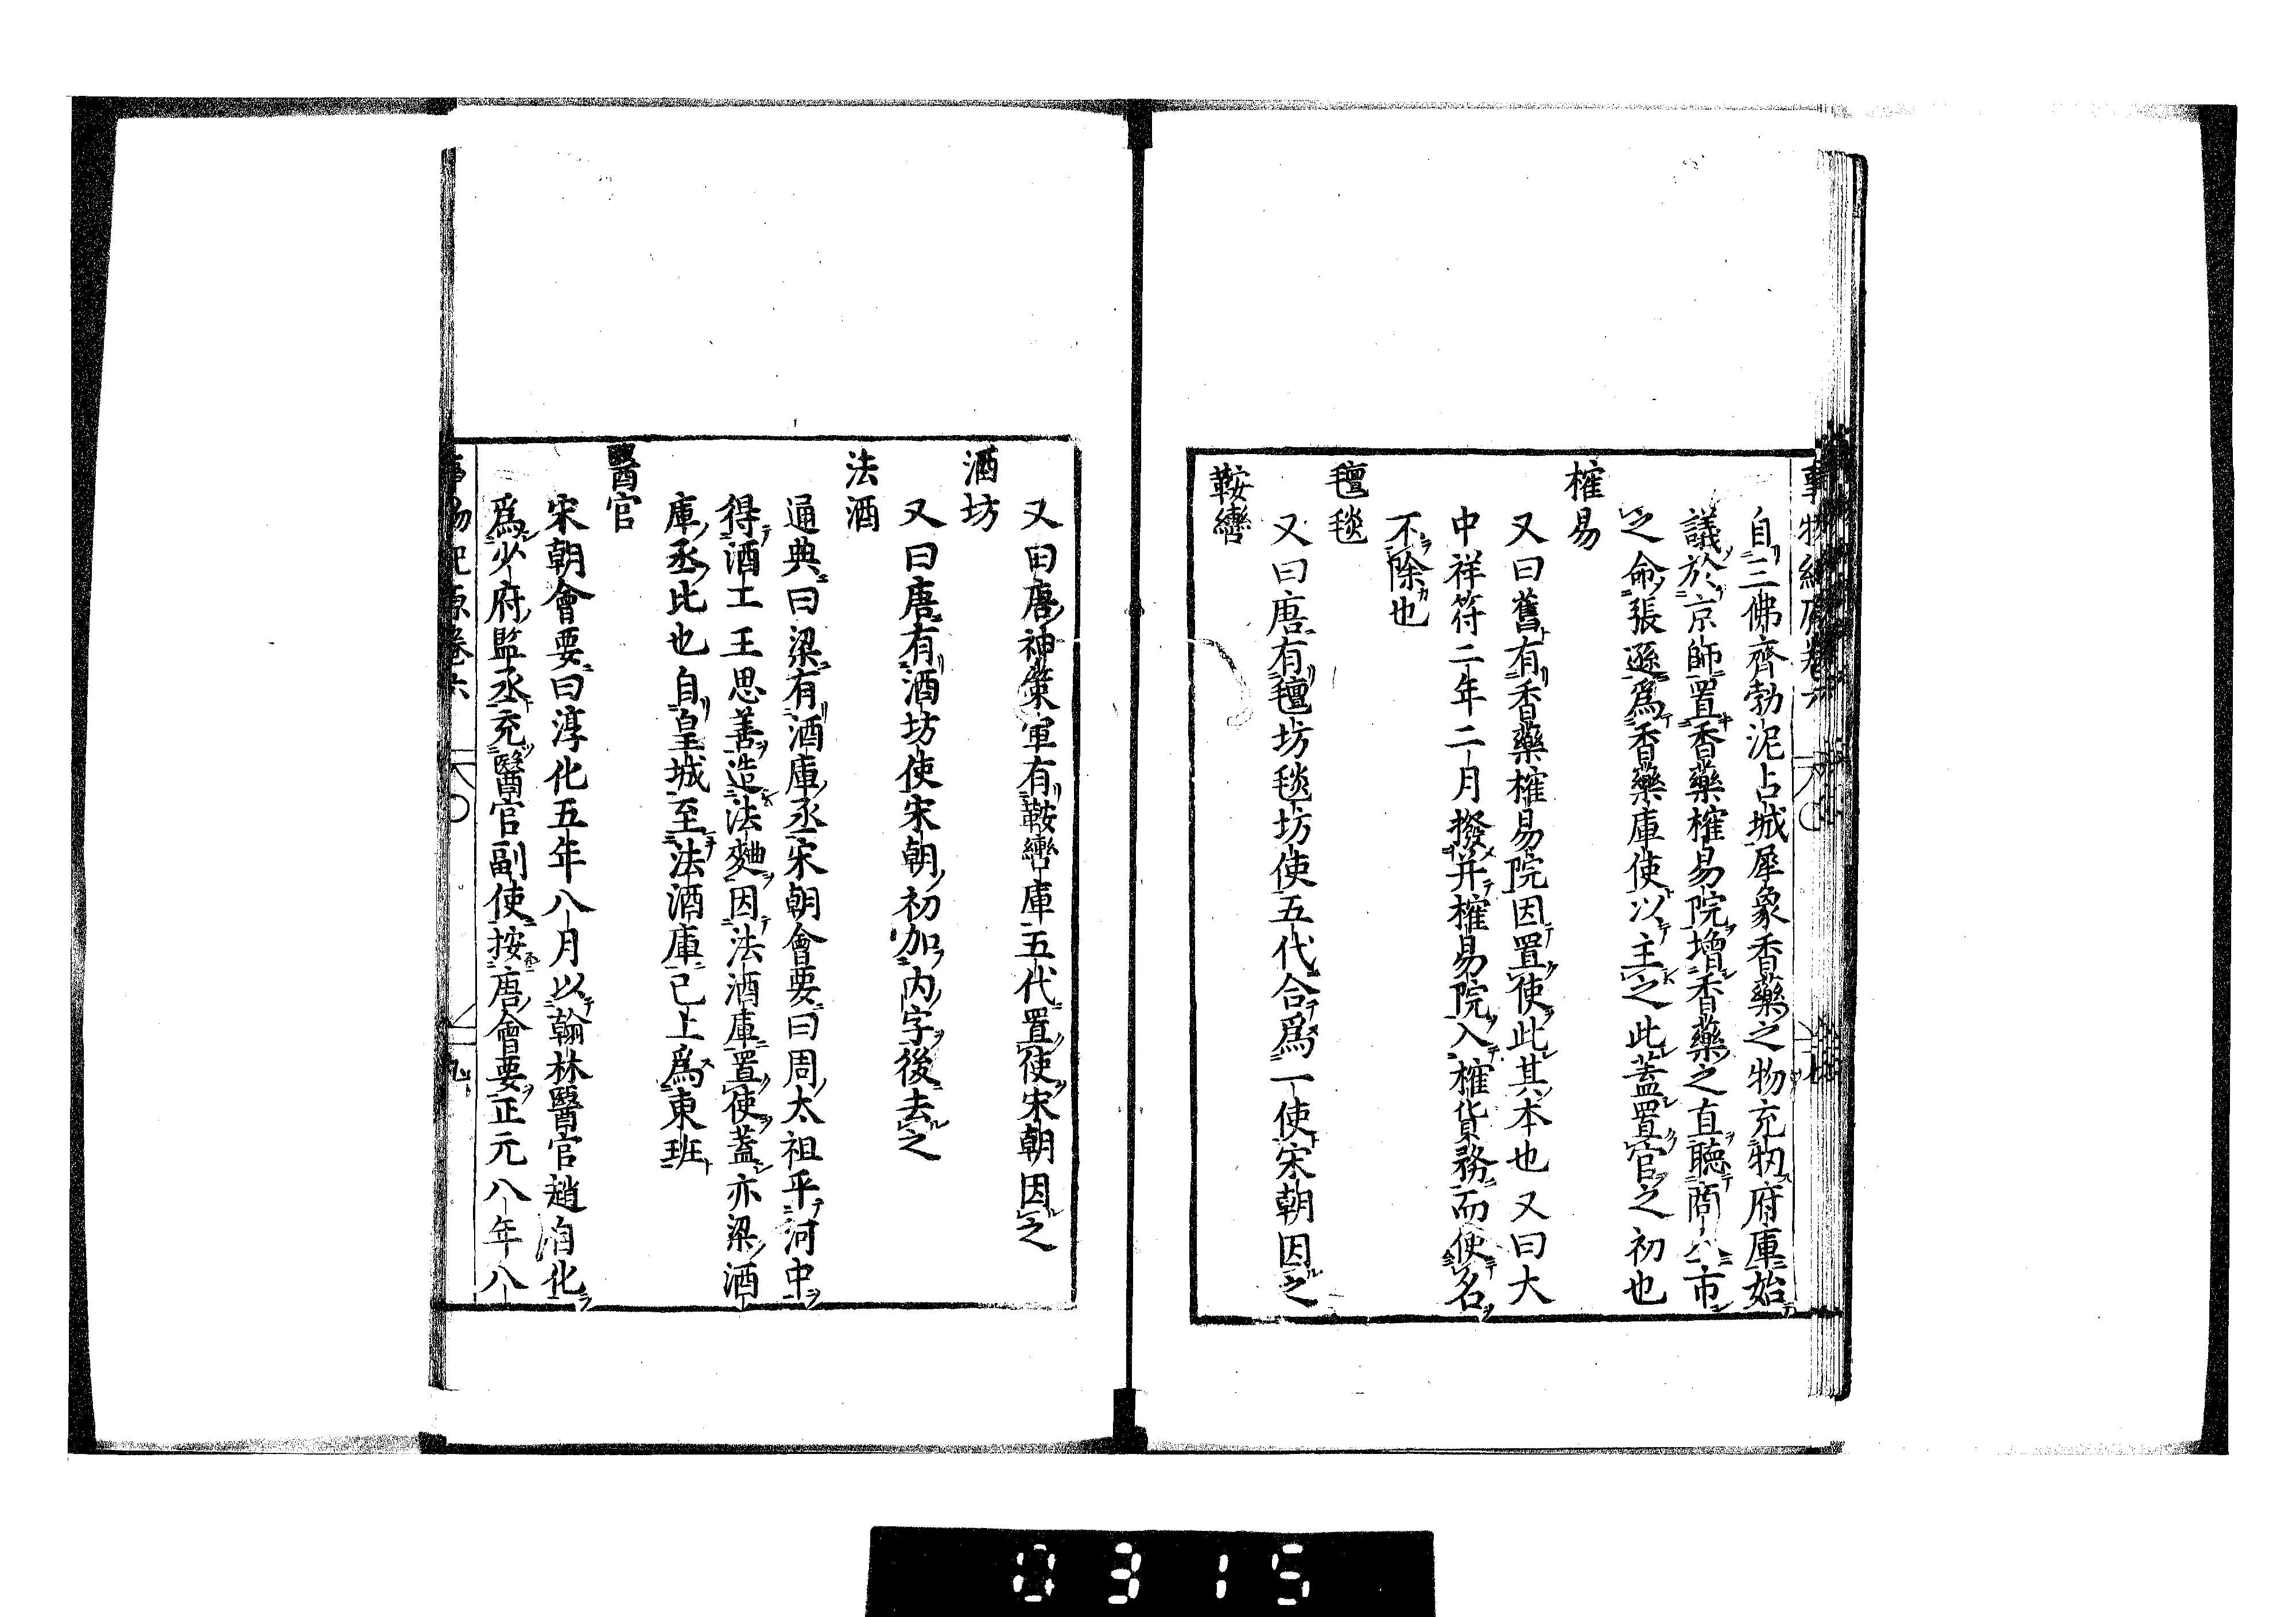 事物紀原卷六
自三佛齊勃泥占城犀象香藥之物充牣府庫始
議於京師置香藥榷易院增香藥之直聽商人市
之命張遜爲香藥庫使以主之此蓋置官之初也
榷易
又曰舊有香藥榷易院因置使此其本也又曰大
中祥符二年二月撥并榷易院入榷貨務而使名
不除也
氊毯
又曰唐有氊坊毯坊使五代合爲一使宋朝因之
鞍轡
又曰唐神策軍有鞍轡庫五代置使宋朝因之
酒坊
又曰唐有酒坊使宋朝初加內字後去之
法酒
通典曰梁有酒庫丞宋朝會要曰周太祖平河中
得酒工王思善造法麯因法酒庫置使蓋亦梁酒
庫丞比也自皇城至法酒庫已上爲東班
醫官
宋朝會要曰淳化五年八月以翰林醫官趙自化
爲少府監丞充醫官副使按唐會要正元八年八
事物紀原卷六 九
0315